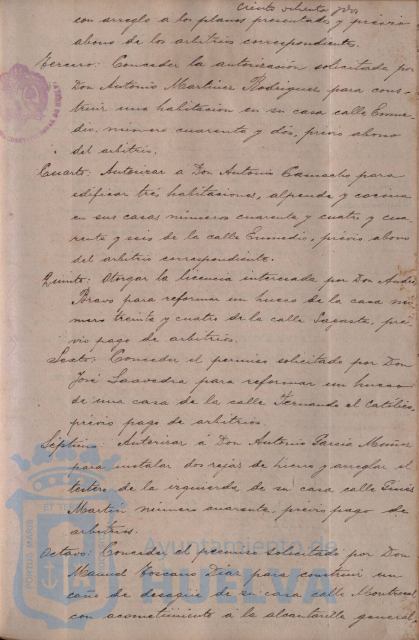 Ciento ochenta y dos
con arreglo a los planos presentado y previo
abono de los arbitrios correspondiente.
Tercero: Conceder la autorización solicitada por
Don Antonio Martinez Rodriguez para cons-
truir una habitación en su casa calle Enme-
dio, número cuarenta y dos, previo abono
del arbitrio.
Cuarto. Autorizar a Don Antonio Camacho para
edificar tres habitaciones, alpende y cocina
en sus casas números cuarenta y cuatro y cua-
renta y seis de la calle Enmedio, previo abono
del arbitrio correspondiente.
Quinto: Otorgar la licencia interesada por Don Andrés
Bravo para reformar un hueco de la casa nú-
mero treinta y cuatro de la calle Sagasta, pre-
vio pago de arbitrios.
Sexto: Conceder el permiso solicitado por Don
José Saavedra para reformar un hueco
de una casa de la calle Fernando el Católico
previo pago de arbitrios.
Séptimo: Autorizar á Don Antonio García Muñoz
para instalar dos rejas de hierro y arreglar el
testero de la izquierda de su casa calle Ginés
Martin número cuarenta, previo pago de
arbitrios.
Octavo: Conceder el permiso solicitado por Don
Manuel Toscano Diaz para construir un
caño de desagüe de su casa calle Montrocal
con acometimiento á la alcantarilla general
Ayuntamiento de
HUELVA
PORTUS MARIS